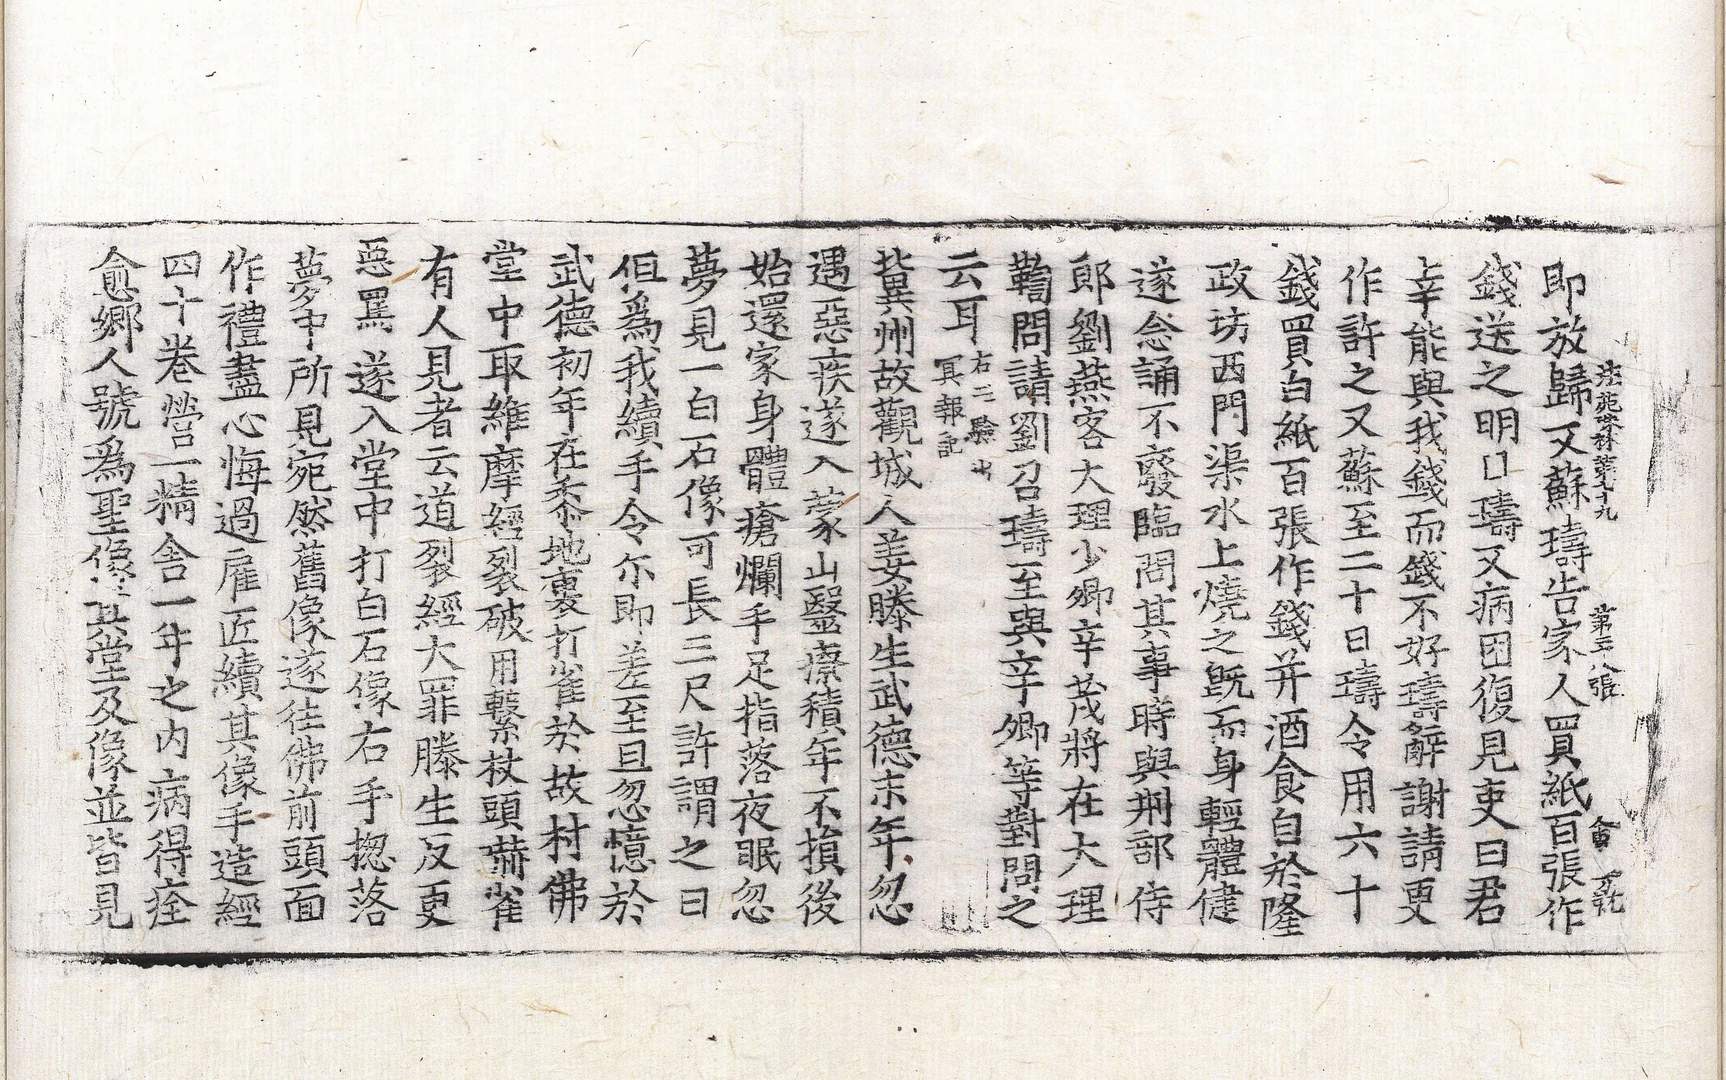 法苑珠林第七十九 第三八張 會 万託
即放歸又蘇璹告家人買紙百張作
錢送之明日璹又病困復見吏曰君
幸能與我錢而錢不好璹辭謝請更
作許之又蘇至二十日璹令用六十
錢買白紙百張作錢并酒食自於隆
政坊西門渠水上燒之旣而身輕體健
遂念誦不廢臨問其事時與刑部侍
郎劉燕客大理少卿辛茂將在大理
鞫問請劉召璹至與辛卿等對問之
云耳 右三驗出
冥報記
兾州故觀城人姜滕生武德末年忽
遇惡疾遂入蒙山醫療積年不損後
始還家身體瘡爛手足指落夜眠忽
夢見一白石像可長三尺許謂之曰
但爲我續手令尓即差至旦忽憶於
武德初年在黍地裏打雀於故村佛
堂中取維摩經裂破用繫杖頭嚇雀
有人見者云道裂經大罪滕生反更
惡罵遂入堂中打白石像右手摠落
夢中所見宛然舊像遂往佛前頭面
作禮盡心悔過雇匠續其像手造經
四十卷營一精舍一年之內病得痊
愈鄉人號爲聖像其堂及像並皆見